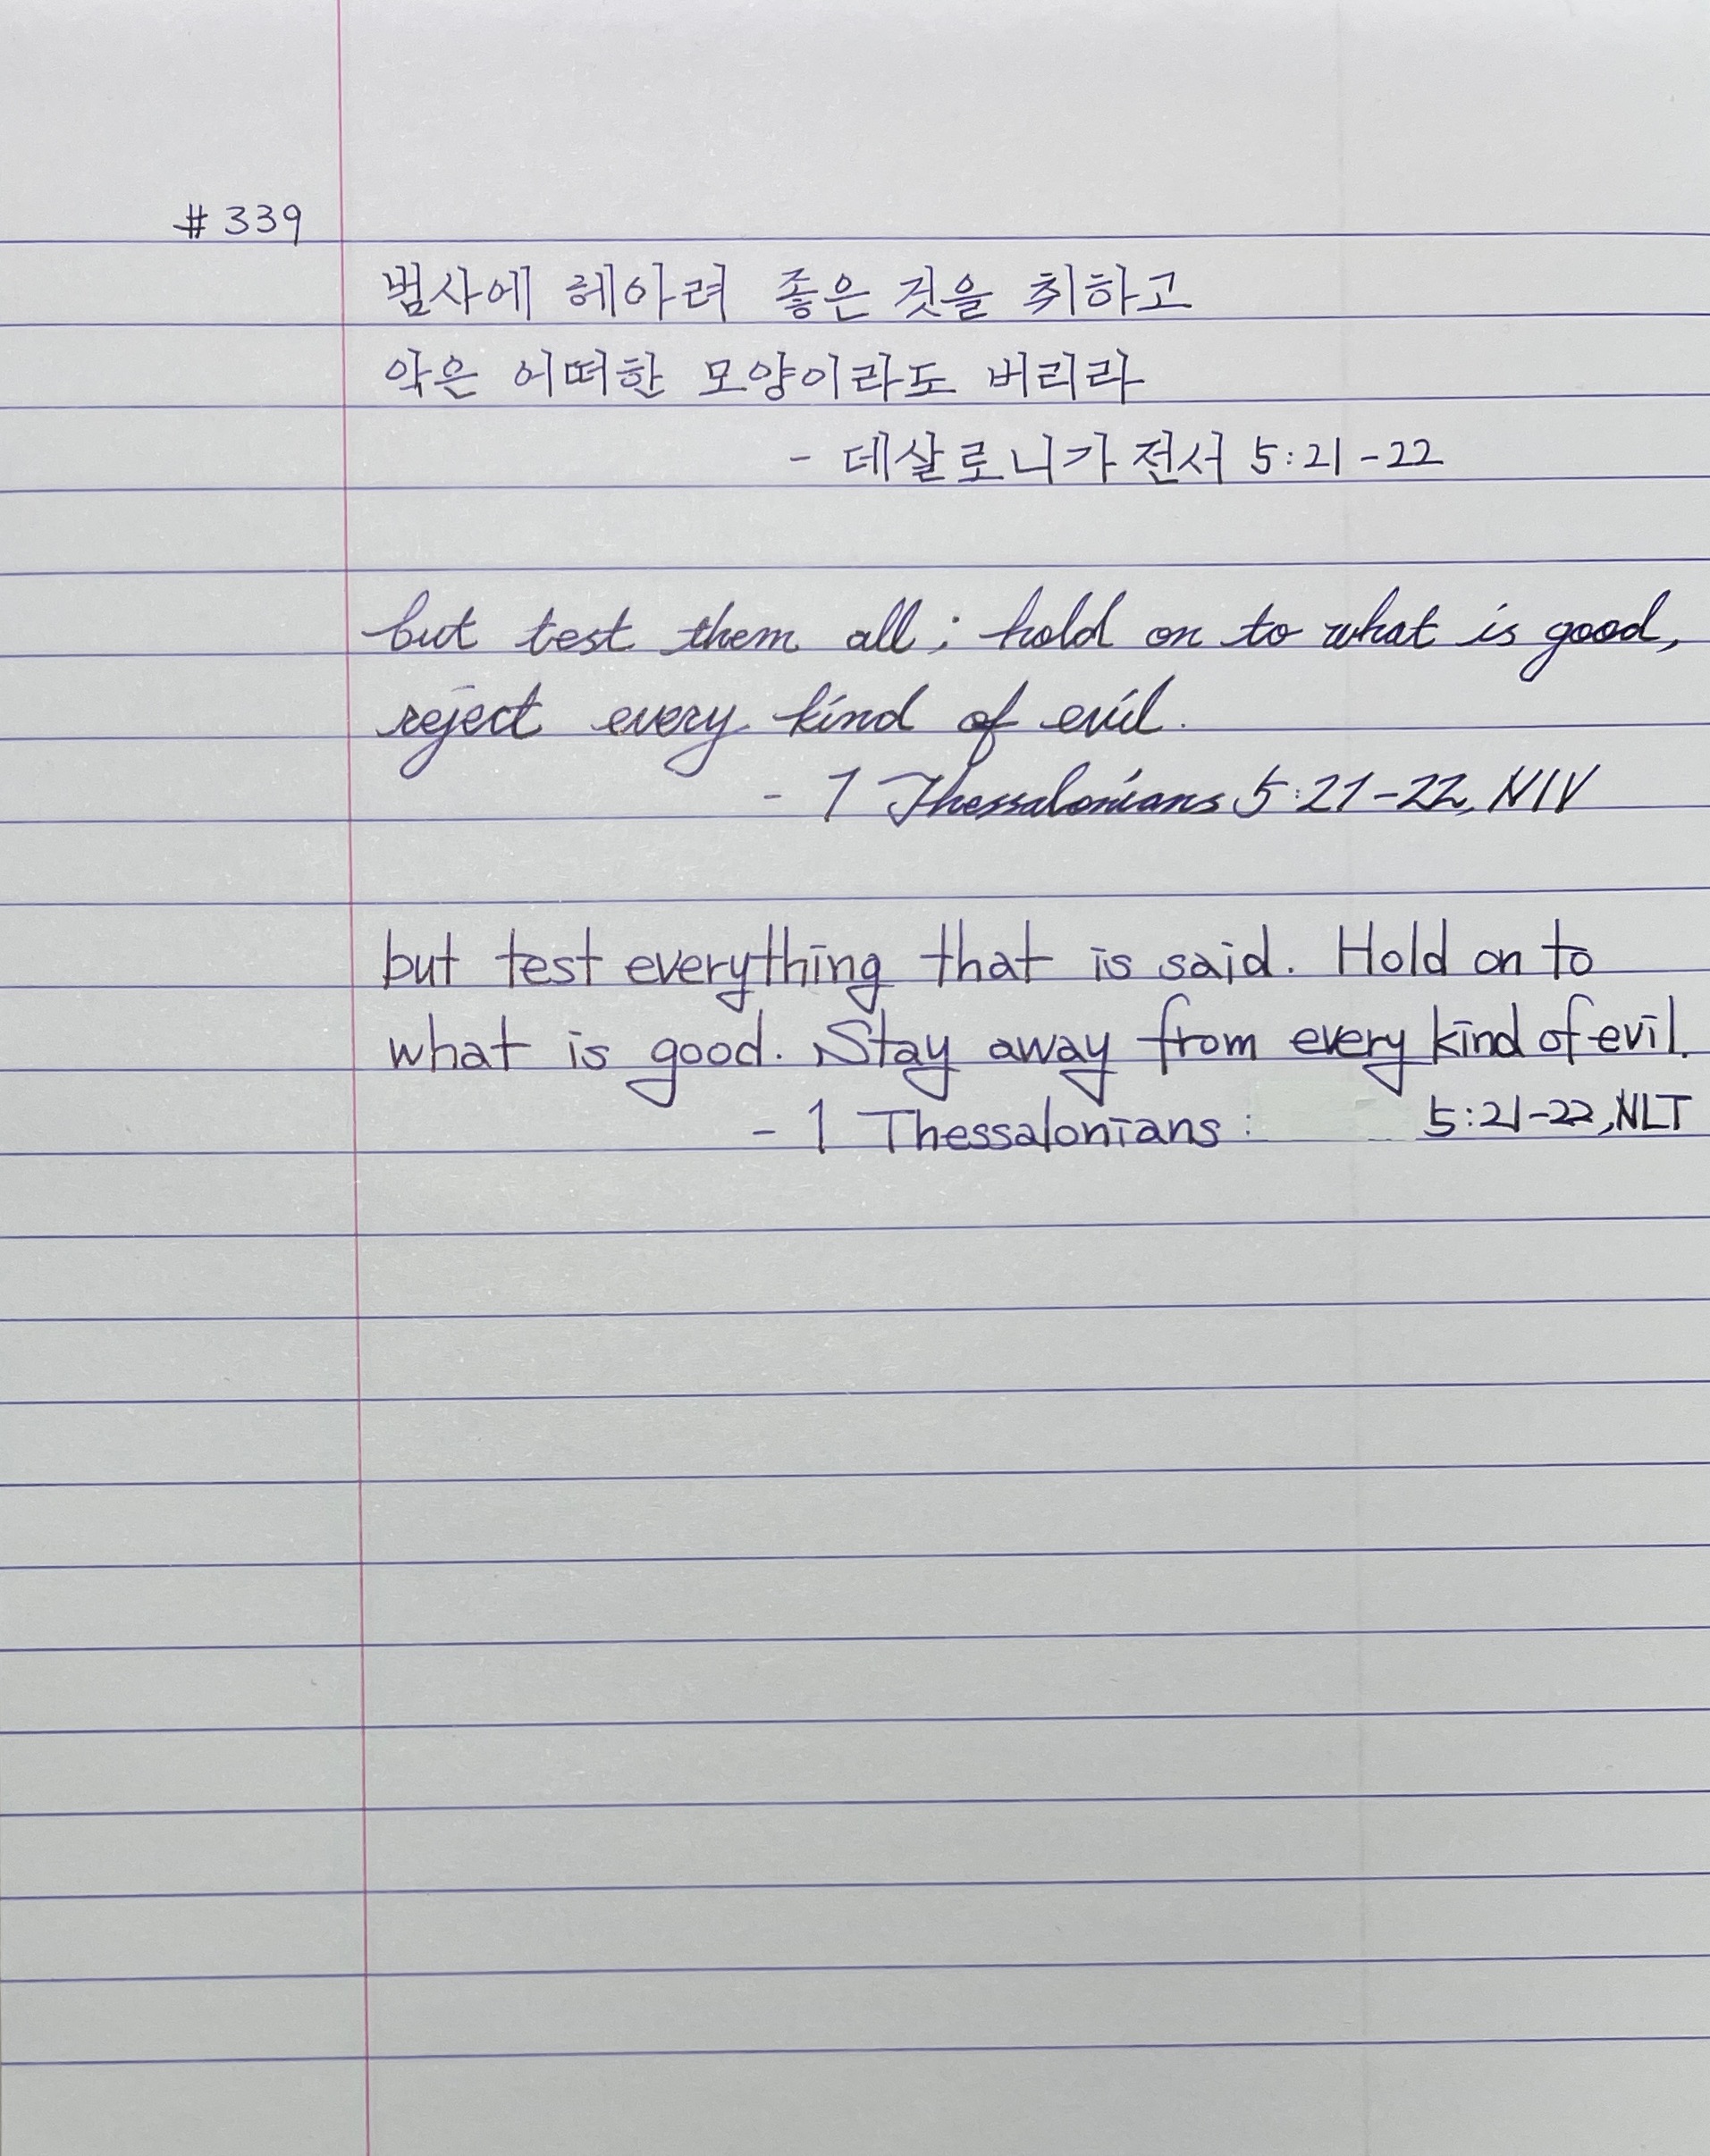 #339
범사에 헤아려 좋은 것을 취하고
악은 어떠한 모양이라도 버리라
- 데살로니가 전서 5:21-22
but test them all; hold on to what is good,
reject every kind of evil.
- 1 Thessalonians 5:21-22, NIV
but test everything that is said. Hold on to
what is good. Stay away from every kind of evil.
- 1 Thessalonians : 5:21-22, NLT